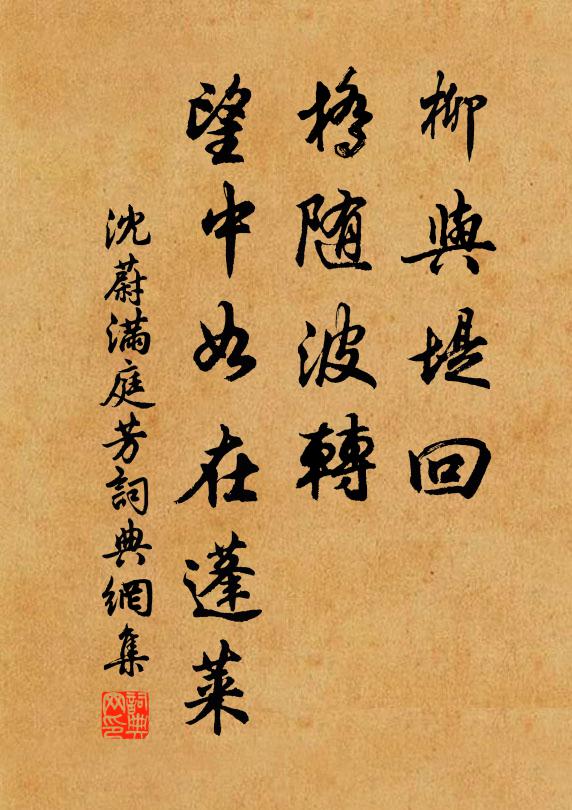 柳與堤回
橋随波轉
望中如在蓬萊
沈蔚滿庭芳詞典網集
詞典网印